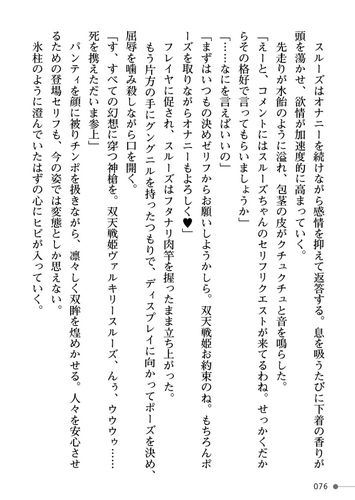 スルーズはオナニーを続けながら感情を抑えて返答する。息を吸うたびに下着の香りが
頭を蕩かせ、欲情が加速度的に高まっていく。
先走りが水飴のように溢れ、包茎の皮がクチュクチュと音を鳴らした。
「えーと、コメントにはスルーズちゃんのセリフリクエストが来てるわね。せっかくだか
らその格好で言ってもらいましょうか」
「……なにを言えばいいの」
「まずはいつもの決めゼリフからお願いしようかしら。双天戦姫お約束のね。もちろんポ
ーズを取りながらオナニーもよろしく♥」
フレイヤに促され、スルーズはフタナリ肉竿を握ったまま立ち上がった。
もう片方の手にグングニルを持ったつもりで、ディスプレイに向かってポーズを決め、
屈辱を噛み殺しながら口を開く。
「す、すべての幻想に穿つ神槍を。双天戦姫ヴァルキリースルーズ、んぅ、ウウウゥ……
死を携えただいま参上」
パンティを顔に被りチンポを扱きながら、凛々しく双眸を煌めかせる。人々を安心させ
るための登場セリフも、今の姿では変態としか思えない。
氷柱のように澄んでいたはずの心にヒビが入っていく。
076